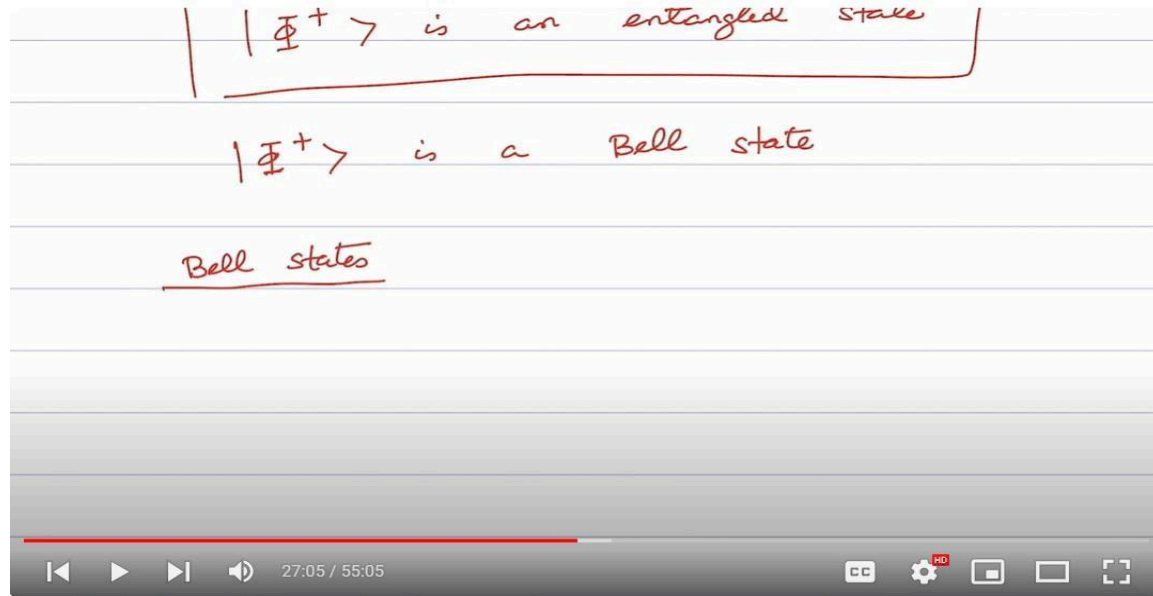 |Φ⁺> is an entangled state
|Φ⁺> is a Bell state
Bell states
27:05 / 55:05
CC HD